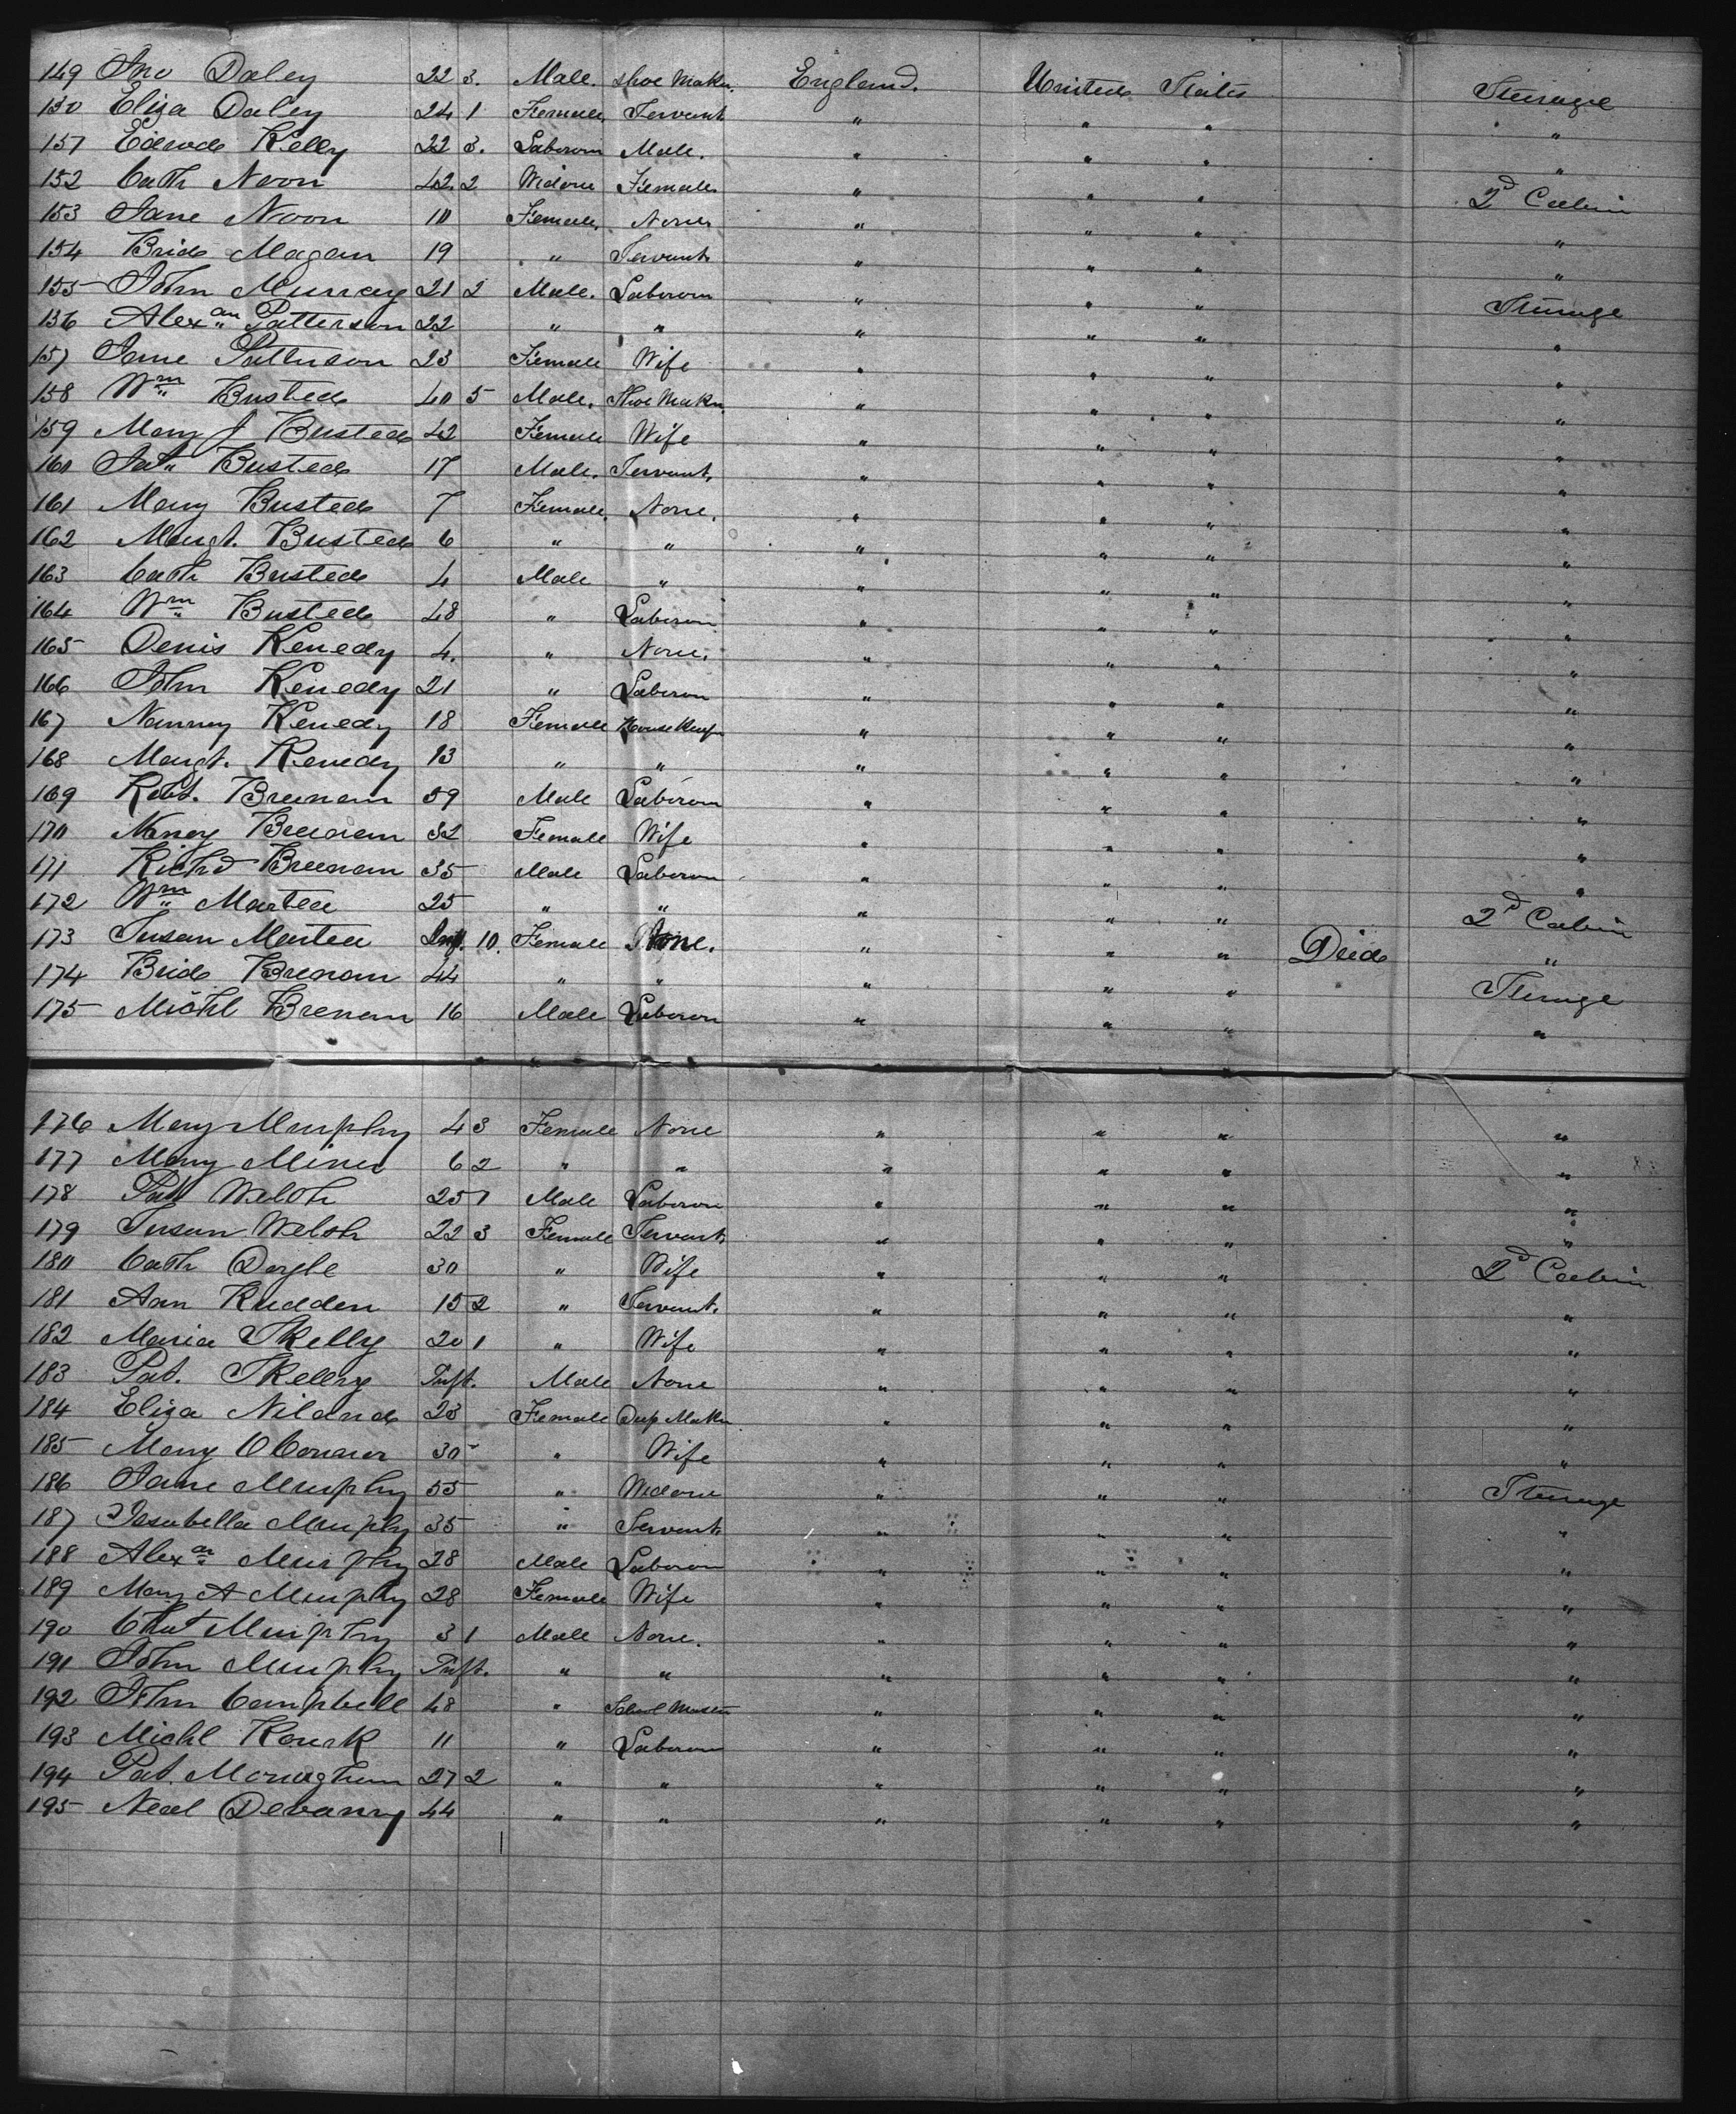 149 Jno Daley 22 3. Male. Shoe Maker. England. United States Steerage
150 Eliza Daley 24 1 Female, Servant " " " "
151 Edwod Kelly 22 3. Laborour Male. " " " "
152 Cath Noon 42 2 Widow Female " " " 2d Cabin
153 Jane Noon 10 Female. None " " " "
154 Brids Magan 19 " Servant " " " "
155 John Murray 21 2 Male. Laborour " " " Steerage
156 Alexan Patterson 22 " " " " " "
157 Jane Patterson 23 Female Wife " " " "
158 Wm Busteds 40 5 Male. Shoe Maker " " " "
159 Mary J Busteds 42 Female Wife " " " "
160 Busteds 17 Male. Servant. " " " "
161 Mary Busteds 7 Female. None. " " " "
162 Margt. Busteds 6 " " " " " "
163 Cath Busteds 4 Male " " " " "
164 Wm Busteds 48 " Laborour " " " "
165 Denis Kenedy 4. " None. " " " "
166 John Kenedy 21 " Laborour " " " "
167 Nanny Kenedy 18 Female House Keeper " " " "
168 Margt. Kenedy 13 " " " " " "
169 Robt. Breenam 59 Male Laborour " " " "
170 Nancy Breenam 32 Female Wife " " " "
171 Richd Breenam 35 Male Laborour " " " "
172 Wm Marten 25 " " " " " 2d Cabin
173 Susan Marten Inft. 10. Female None. " " " Dieds "
174 Brids Brenam 44 " " " " " Steerage
175 Michl Brenam 16 Male Laborour " " " "
176 Mary Murphy 4 3 Female None " " " "
177 Mary 6 2 " " " " " "
178 Pat Welsh 25 1 Male Laborour " " " "
179 Susan Welsh 22 3 Female Servant " " " "
180 Cath Dogle 30 " Wife " " " 2d Cabin
181 Ann Rudden 15 2 " Servant. " " " "
182 Maria Skelly 20 1 " Wife " " " "
183 Pat. Skelly Inft. Male None " " " "
184 Eliza Nilands 23 Female Maker " " " "
185 Mary O Connor 30 " Wife " " " "
186 Jane Murphy 55 " Widow " " " Steerage
187 Isabella Murphy 35 " Servant " " " "
188 Alexan Murphy 28 Male Laborour " " " "
189 Mary A Murphy 28 Female Wife " " " "
190 Murphy 3 1 Male None. " " " "
191 John Murphy Inft. " " " " " "
192 John Campbell 48 " School Master " " " "
193 Michl Rourk 11 " Laborour " " " "
194 Pat. Monaghan 27 2 " " " " " "
195 Neal Devanny 44 " " " " " "